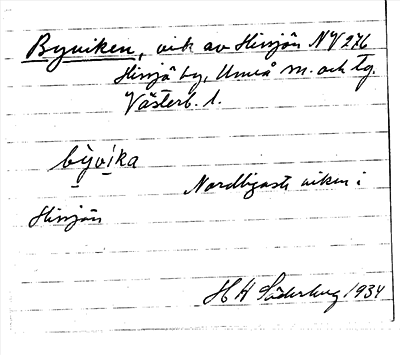 Byviken, vik av Hissjön NV 276
Hissjö by, Umeå m. och tg.
Västerb. l.
bỳvíka
Nordligaste viken i
Hissjön
H H Söderberg 1934